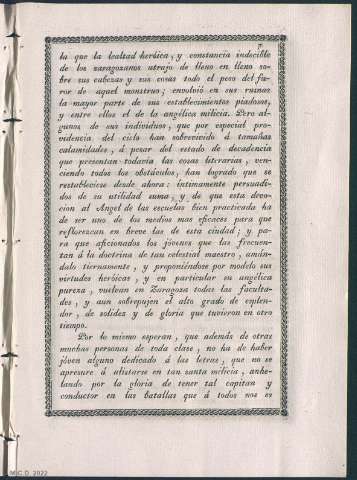 7
ta que la lealtad heróica, y constancia indecible
de los zaragozanos atrajo de lleno en lleno so-
bre sus cabezas y sus casas todo el peso del fu-
ror de aquel monstruo; envolvió en sus ruinas
la mayor parte de sus establecimientos piadosos,
y entre ellos el de la angélica milicia. Pero al-
gunos de sus individuos, que por especial pro-
videncia del cielo han sobrevivido á tamañas
calamidades, á pesar del estado de decadencia
que presentan todavía las cosas literarias, ven-
ciendo todos los obstáculos, han logrado que se
restableciese desde ahora: íntimamente persuadi-
dos de su utilidad suma, y de que esta devo-
cion al Angel de las escuelas bien practicada ha
de ser uno de los medios mas eficaces para que
reflorezcan en breve las de esta ciudad; y pa-
ra que aficionados los jóvenes que las frecuen-
tan á la doctrina de tan celestial maestro, amán-
dolo tiernamente, y proponiéndose por modelo sus
virtudes heróicas, y en particular su angélica
pureza, vuelvan en Zaragoza todas las faculta-
des, y aun sobrepujen el alto grado de esplen-
dor, de solidez y de gloria que tuvieron en otro
tiempo.
Por lo mismo esperan, que además de otras
muchas personas de toda clase, no ha de haber
jóven alguno dedicado á las letras, que no se
apresure á alistarse en tan santa milicia, anhe-
lando por la gloria de tener tal capitan y
conductor en las batallas que á todos nos es
MC D. 2022